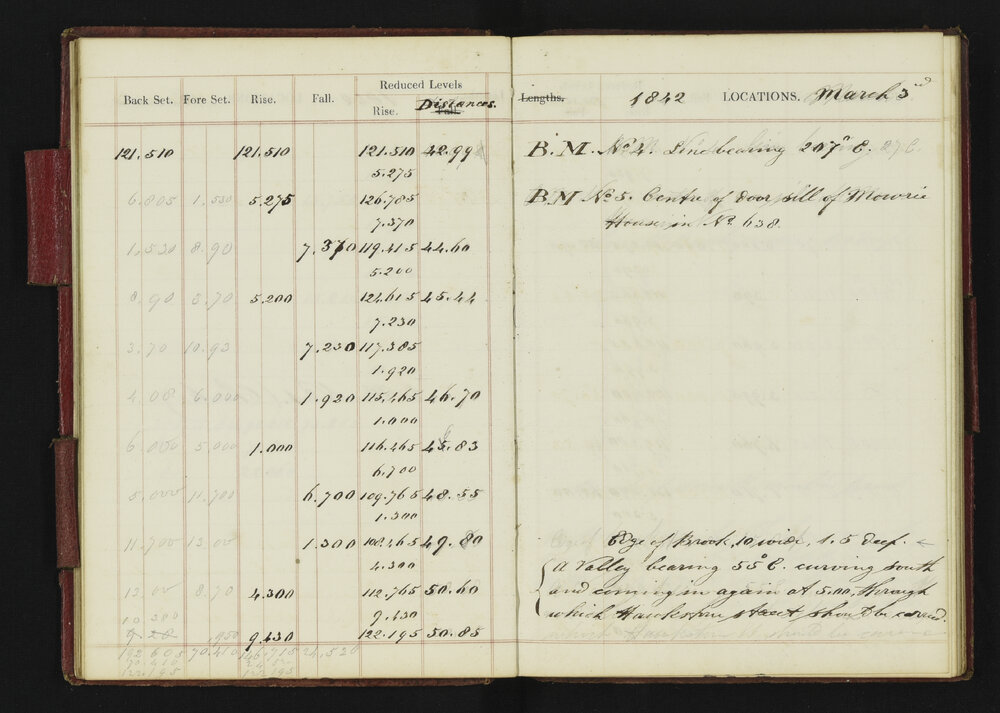 Reduced Levels
Back Set. Fore Set. Rise. Fall. Rise. Fall. Distances. Lengths. 1842 LOCATIONS. March 3rd
121.510 121.510 121.510 42.99 B.M. No 4. Line bearing 207° E.
5.275
6.805 1.530 5.275 126.785 B.M No 5. Centre of door sill of Mowrie
7.370 House in No 638.
1.530 8.90 7.370 119.415 44.60
5.200
8.90 3.70 5.200 124.615 45.44
7.230
3.70 10.93 7.230 117.385
1.920
4.08 6.000 1.920 115.465 46.70
1.000
6.000 5.000 1.000 116.465 .83
6.700
5.000 11.700 6.700 109.765 48.55
1.300
11.700 13.00 1.300 108.465 49.80 Edge of Brook, 10 wide, 1.5 deep.
4.300 A Valley bearing 55° E. curving south
13.00 8.70 4.300 112.765 50.60 and coming in again at 5.00, through
10 380 9.430 which street should be carried.
.950 9.430 122.195 50.85
192 605 70.410 146.715 24.520
70.410
122.195 122.195